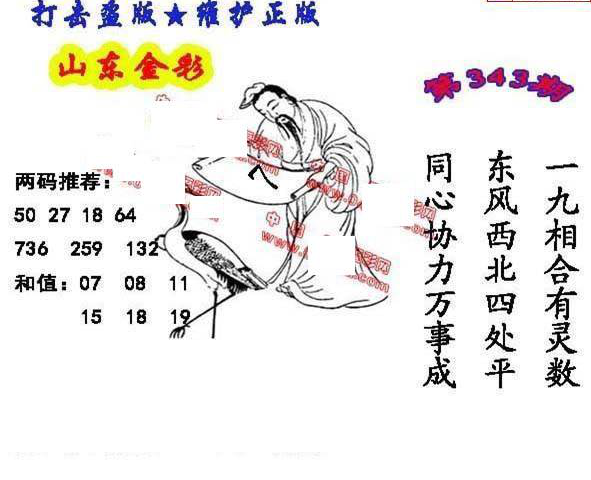 打击盗版★维护正版
山东金彩
第343期
两码推荐：
50 27 18 64
736 259 132
和值：07 08 11
15 18 19
一九相合有灵数
东风西北四处平
同心协力万事成